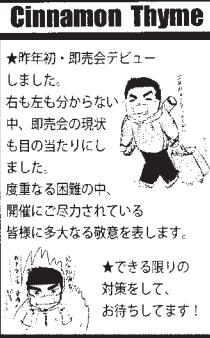 Cinnamon Thyme
★昨年初・即売会デビュー
しました。
右も左も分からない
中、即売会の現状
も目の当たりにし
ました。
度重なる困難の中、
開催にご尽力されている
皆様に多大なる敬意を表します。
★できる限りの
対策をして、
お待ちしてます！